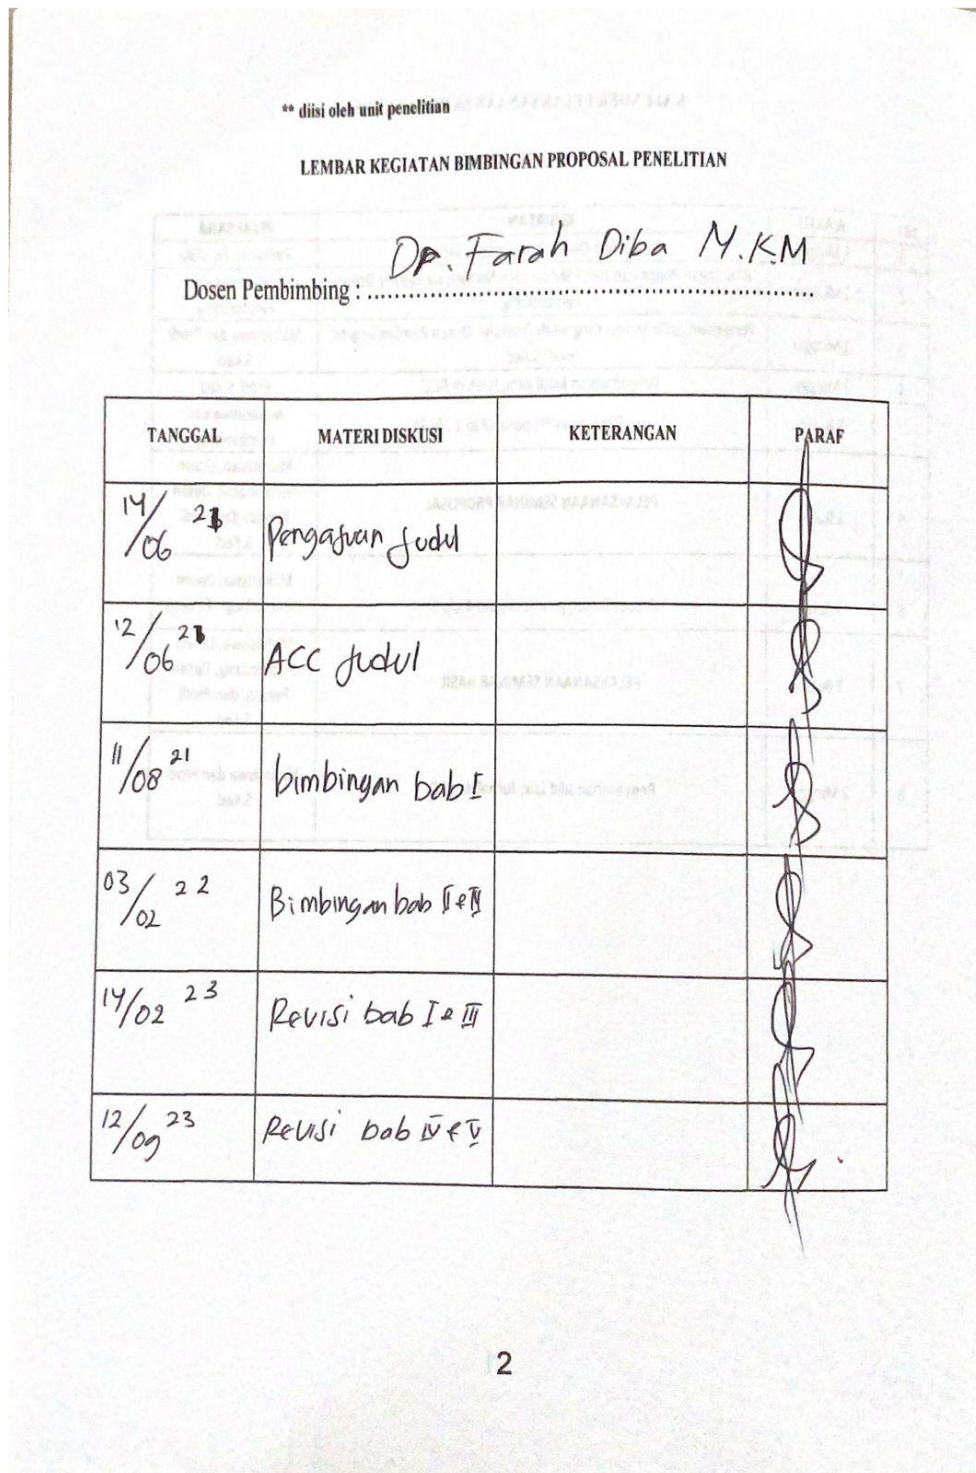 ** diisi oleh unit penelitian
LEMBAR KEGIATAN BIMBINGAN PROPOSAL PENELITIAN
Dr. Farah Diba M.K.M
Dosen Pembimbing : ................................................................
TANGGAL MATERI DISKUSI KETERANGAN PARAF
14/06 21 Pengajuan Judul
12/06 21 ACC Judul
11/08 21 bimbingan bab I
03/02 22 Bimbingan bab II &
14/02 23 Revisi bab I & III
12/09 23 Revisi bab IV & V
2